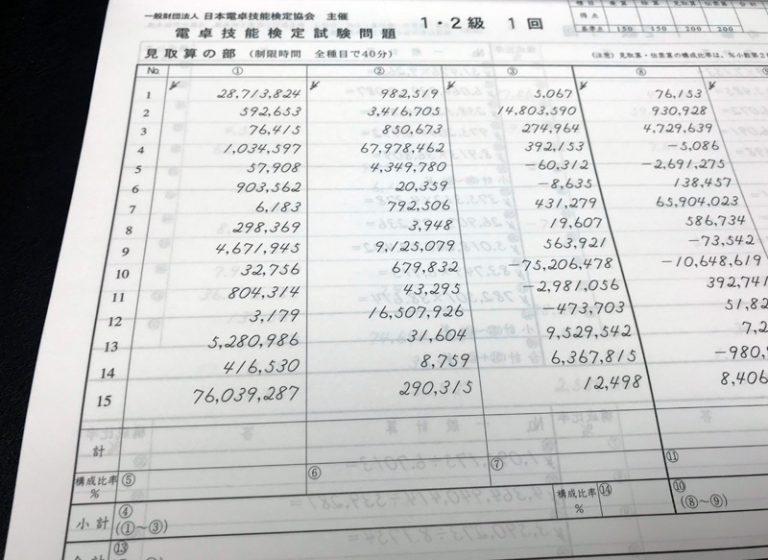 一般財団法人 日本電卓技能検定協会 主催
電卓技能検定試験問題 1・2級 1回
種目 乗算 除算 見取算 伝票算 合計
得点
基準点 150 150 200 200
見取算の部 (制限時間 全種目で40分) (注意) 見取算・伝票算の構成比率は、%小数第2
No. ① ② ③ ⑧
1 ¥ 28,713,824 ¥ 982,519 ¥ 5,067 ¥ 76,153
2 592,653 3,416,705 14,803,590 930,928
3 76,415 850,673 274,964 4,729,639
4 1,034,597 67,978,462 392,153 -5,086
5 57,908 4,349,780 -60,312 -2,691,275
6 903,562 20,359 -8,635 138,457
7 6,183 792,506 431,279 65,904,023
8 298,369 3,948 19,607 586,734
9 4,671,945 9,125,079 563,921 -73,542
10 32,756 679,832 -75,206,478 -10,648,619
11 804,314 43,295 -2,981,056 392,741
12 3,179 16,507,926 -473,703 51,82
13 5,280,986 31,604 9,529,542 7,2
14 416,530 8,759 6,367,815 -980,
15 76,039,287 290,315 12,498 8,406
計 ⑪
構成比率 % ⑤ ⑥ ⑦
小計 ④ (①~③) 構成比率 % ⑭ ⑩ (⑧~⑨)
合計 ⑬